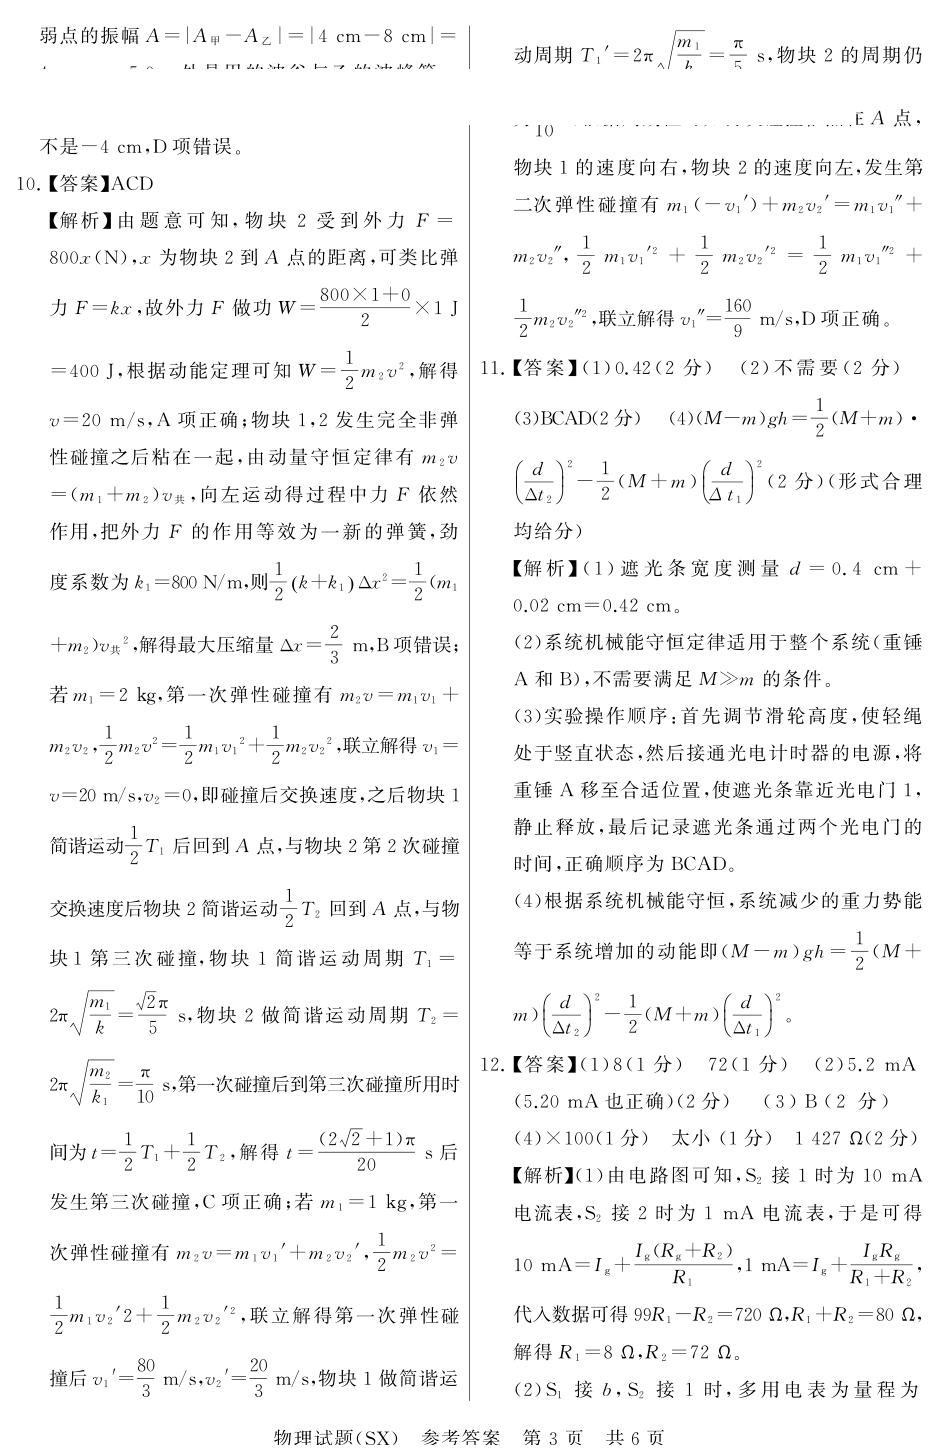 弱点的振幅 A=|A甲-A乙|=|4 cm-8 cm|=
不是-4 cm,D项错误。
10.【答案】ACD
【解析】由题意可知,物块 2 受到外力 F=
800x(N),x 为物块 2 到 A 点的距离,可类比弹
力 F=kx,故外力 F 做功 W=\frac{800×1+0}{2}×1 J
=400 J,根据动能定理可知 W=\frac{1}{2}m₂v²,解得
v=20 m/s,A 项正确;物块 1,2 发生完全非弹
性碰撞之后粘在一起,由动量守恒定律有 m₂v
=(m₁+m₂)v共,向左运动得过程中力 F 依然
作用,把外力 F 的作用等效为一新的弹簧,劲
度系数为 k₁=800 N/m,则\frac{1}{2}(k+k₁)Δx²=\frac{1}{2}(m₁
+m₂)v共²,解得最大压缩量 Δx=\frac{2}{3} m,B项错误;
若 m₁=2 kg,第一次弹性碰撞有 m₂v=m₁v₁+
m₂v₂,\frac{1}{2}m₂v²=\frac{1}{2}m₁v₁²+\frac{1}{2}m₂v₂²,联立解得 v₁=
v=20 m/s,v₂=0,即碰撞后交换速度,之后物块 1
简谐运动\frac{1}{2}T₁ 后回到 A 点,与物块 2 第 2 次碰撞
交换速度后物块 2 简谐运动\frac{1}{2}T₂ 回到 A 点,与物
块 1 第三次碰撞,物块 1 简谐运动周期 T₁=
2π\sqrt{\frac{m₁}{k}}=\frac{\sqrt{2}π}{5} s,物块 2 做简谐运动周期 T₂=
2π\sqrt{\frac{m₂}{k₁}}=\frac{π}{10} s,第一次碰撞后到第三次碰撞所用时
间为 t=\frac{1}{2}T₁+\frac{1}{2}T₂,解得 t=\frac{(2\sqrt{2}+1)π}{20} s 后
发生第三次碰撞,C 项正确;若 m₁=1 kg,第一
次弹性碰撞有 m₂v=m₁v₁′+m₂v₂′,\frac{1}{2}m₂v²=
\frac{1}{2}m₁v₂′2+\frac{1}{2}m₂v₂′²,联立解得第一次弹性碰
撞后 v₁′=\frac{80}{3} m/s,v₂′=\frac{20}{3} m/s,物块 1 做简谐运
动周期 T₁′=2π\sqrt{\frac{m₁}{k}}=\frac{π}{5} s,物块 2 的周期仍
10 A 点,
物块 1 的速度向右,物块 2 的速度向左,发生第
二次弹性碰撞有 m₁(-v₁′)+m₂v₂′=m₁v₁″+
m₂v₂″,\frac{1}{2}m₁v₁′²+\frac{1}{2}m₂v₂′²=\frac{1}{2}m₁v₁″²+
\frac{1}{2}m₂v₂″²,联立解得 v₁″=\frac{160}{9} m/s,D项正确。
11.【答案】(1)0.42(2 分) (2)不需要(2 分)
(3)BCAD(2分) (4)(M-m)gh=\frac{1}{2}(M+m)·
(\frac{d}{Δt₂})²-\frac{1}{2}(M+m)(\frac{d}{Δt₁})²(2 分)(形式合理
均给分)
【解析】(1)遮光条宽度测量 d=0.4 cm+
0.02 cm=0.42 cm。
(2)系统机械能守恒定律适用于整个系统(重锤
A 和 B),不需要满足 M≫m 的条件。
(3)实验操作顺序:首先调节滑轮高度,使轻绳
处于竖直状态,然后接通光电计时器的电源,将
重锤 A 移至合适位置,使遮光条靠近光电门 1,
静止释放,最后记录遮光条通过两个光电门的
时间,正确顺序为 BCAD。
(4)根据系统机械能守恒,系统减少的重力势能
等于系统增加的动能即(M-m)gh=\frac{1}{2}(M+
m)(\frac{d}{Δt₂})²-\frac{1}{2}(M+m)(\frac{d}{Δt₁})²。
12.【答案】(1)8(1 分) 72(1 分) (2)5.2 mA
(5.20 mA也正确)(2分) (3) B(2 分)
(4)×100(1分) 太小(1分) 1 427 Ω(2分)
【解析】(1)由电路图可知,S₂ 接 1 时为 10 mA
电流表,S₂ 接 2 时为 1 mA 电流表,于是可得
10 mA=I_g+\frac{I_g(R_g+R₂)}{R₁},1 mA=I_g+\frac{I_gR_g}{R₁+R₂},
代入数据可得 99R₁-R₂=720 Ω,R₁+R₂=80 Ω,
解得 R₁=8 Ω,R₂=72 Ω。
(2)S₁ 接 b,S₂ 接 1 时,多用电表为量程为
物理试题(SX) 参考答案 第 3 页 共 6 页